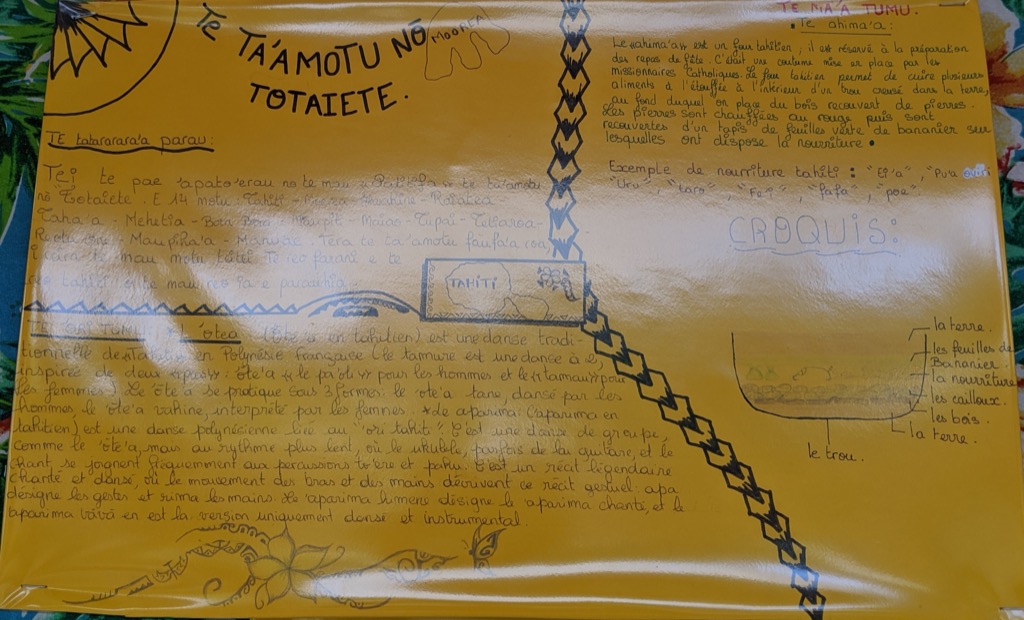 TE TA'AMOTU NŌ
TOTAIETE.
MOOREA
TE tatararara'a parau:
Tei te pae 'apato'erau no te mau te ta'amotu
nō Totaiete. E 14 motu: Tahiti - Moorea - Huahine - Raiatea
Taha'a - Mehetia - Bora Bora - Maupiti - Maiao - Tupai - Tetiaroa -
- Maupiha'a - Manuae. Tera te ta'amotu faufa'a roa
te mau motu
TAHITI
'ōtea (Ōte'a en tahitien) est une danse tradi-
tionnelle de Tahiti en Polynésie Française (le tamure est une danse à 2,
inspirée de deux : ōte'a le pa'oti pour les hommes et le «tamau» pour
les femmes). Le ōte'a se pratique sous 3 formes: le 'ote'a tane, dansé par les
hommes, le ōte'a vahine, interprété par les femmes. *de aparima (aparima en
tahitien) est une danse polynécienne liée au "ori tahiti". C'est une danse de groupe,
comme le 'ōte'a, mais au rythme plus lent, où le ukulélé, parfois de la guitare, et le
chant se joignent fréquemment aux percussions to'ere et pahu. C'est un récit légendaire
chanté et dansé, où le mouvement des bras et des mains décrivant ce récit gestuel: apa
désigne les gestes et rima les mains. Le 'aparima himene désigne le 'aparima chanté, et le
'aparima vāvā en est la version uniquement dansé et instrumental.
TE MA'A TUMU.
• Te ahima'a:
Le «ahima'a» est un four tahitien; il est réservé à la préparation
des repas de fête. C'était une coutume mise en place par les
missionnaires Catholiques. Le four tahitien permet de cuire plusieurs
aliments à l'étouffée à l'intérieur d'un trou creusé dans la terre,
au fond duquel on place du bois recouvert de pierres.
Les pierres sont chauffées au rouge puis sont
recouvertes d'un tapis de feuilles verte de bananier sur
lesquelles ont dispose la nourriture.
Exemple de nourriture tahiti: "Ei'a", "Pu'a
"Uru", "taro", "Fe'i", "fafa", "poe".
CROQUIS:
la terre.
les feuilles de
Bananier.
la nourriture
les cailloux.
les bois.
la terre.
le trou.